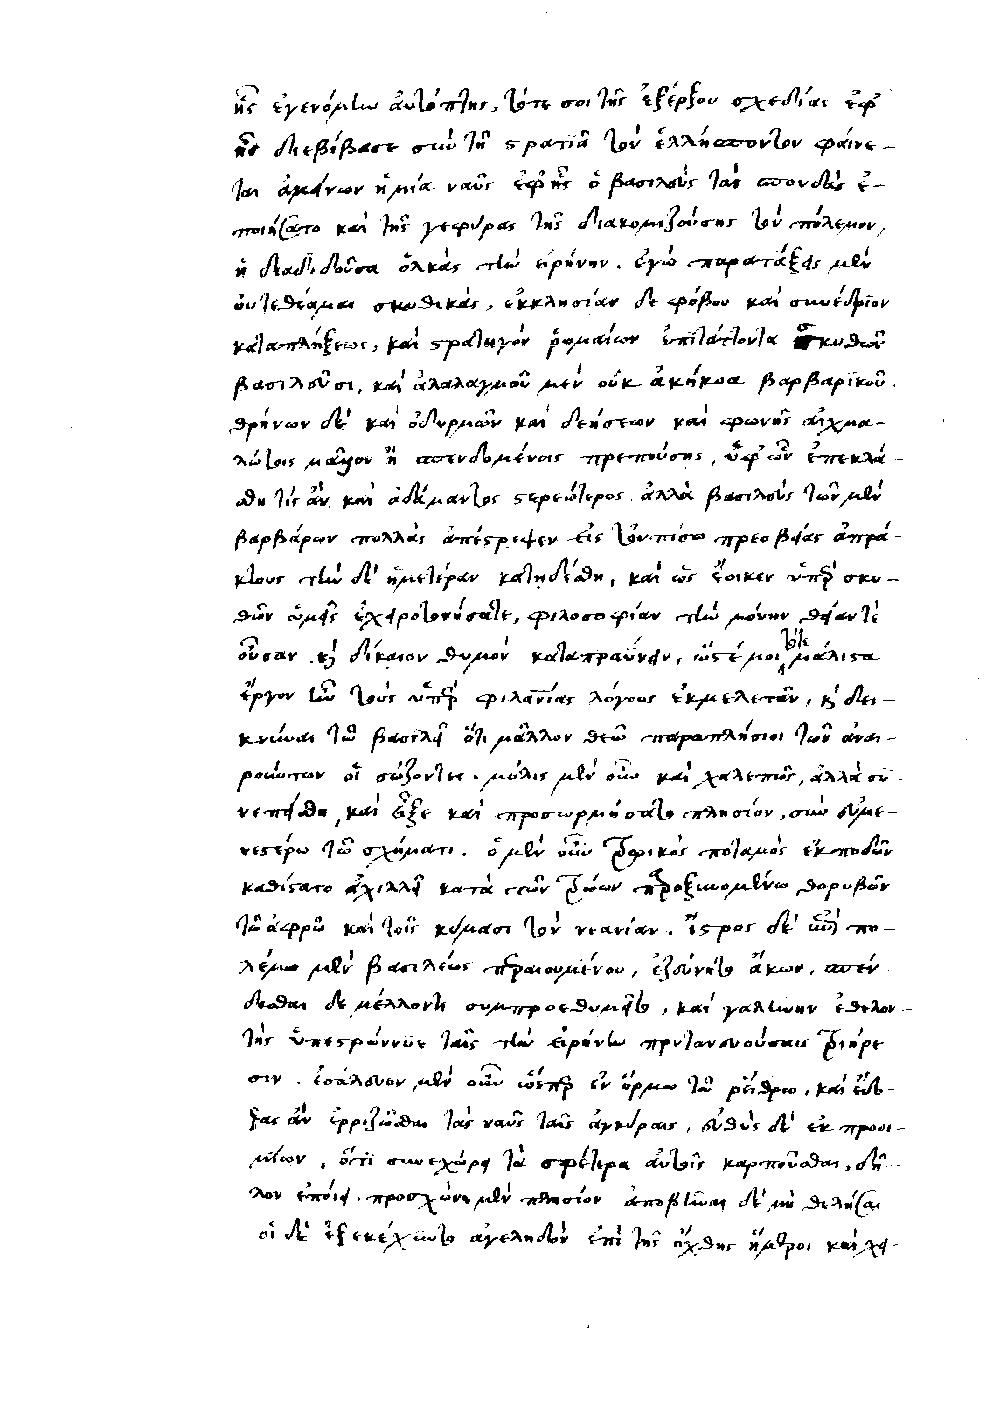 ἧς ἐγενόμην αὐτόπτης, τότε σοι τῆς ἐξέρξου σχεδίας ἐφ᾽
ἧς διεβίβασε σὺν τῆ στρατιᾶ τὸν ἑλλήσποντον φαίνε-
ται ἀμείνων ἡ μία ναῦς ἐφ᾽ ἧς ὁ βασιλεὺς τὰς σπονδὰς ἐ-
ποιήσατο καὶ τῆς γεφύρας τῆς διακομιζούσης τὸν πόλεμον,
ἡ διαδιδοῦσα ὁλκὰς τὴν εἰρήνην. ἐγὼ παρατάξεις μὲν
οὐ τεθέαμαι σκυθικὰς, ἐκκλησίαν δὲ φόβου καὶ συνέδριον
καταπλήξεως, καὶ στρατηγὸν ῥωμαίων ἐπιτάττοντα σκυθῶν
βασιλεῦσι, καὶ ἀλαλαγμοῦ μὲν οὐκ ἀκήκοα βαρβαρικοῦ.
θρήνων δὲ καὶ ὀδυρμῶν καὶ δεήσεων καὶ φωνῆς αἰχμα-
λώτοις μᾶλλον ἢ σπενδομένοις πρεπούσης, ὑφ᾽ ὧν ἐπεκλά-
σθη τίς ἂν καὶ ἀδάμαντος στερεώτερος. ἀλλὰ βασιλεὺς τῶν μὲν
βαρβάρων πολλὰς ἀπέστρεψεν εἰς τὸν πίσω πρεσβείας ἀπρά-
κτους τὴν δὲ ἡμετέραν κατηδέσθη, καὶ ὡς ἔοικεν ὑπὲρ σκυ-
θῶν ὑμεῖς ἐχειροτονήσατε, φιλοσοφίαν τὴν μόνην θείαν τὲ
οὖσαν κ δίκαιον θυμὸν καταπραΰνειν, ὥστέ μοι τότε μάλιστα
ἔργον ἦν τοὺς ὑπὲρ φιλανίας λόγους ἐκμελετᾶν, κ δει-
κνύναι τῶ βασιλεῖ ὅτι μᾶλλον θεῶ παραπλήσιοι τῶν ἀναι-
ρούντων οἱ σώζοντες. μόλις μὲν οὖν καὶ χαλεπῶς, ἀλλὰ συ-
νεπείσθη, καὶ εἶξε καὶ προσωρμήσατο πλησίον, σὺν εὐμε-
νεστέρω τῶ σχήματι. ὁ μὲν οὖν τρωικὸς ποταμὸς ἐκποδὼν
καθίστατο ἀχιλλεῖ κατὰ τῶν τρώων παροξυνομένω θορυβῶν
τῶ ἀφρῶ καὶ τοῖς κύμασι τὸν νεανίαν. ἴστρος δὲ ὑπὸ πο-
λέμω μὲν βασιλέως περαιουμένου, ἐξσύνητο ἄκων, σπέν
δεσθαι δὲ μέλλοντι συμπροεθυμεῖτο, καὶ γαλήνην ἐθελον-
τὴς ὑπεστρώννυε ταῖς τὴν εἰρήνην πρυτανευούσαις τριήρε
σιν. ἐσάλευον μὲν οὖν ὥσπερ ἐν ὅρμω τῶ ῥείθρω, καὶ εἶδο-
ξας ἂν ἐρριζῶσθαι τὰς ναῦς ταῖς ἀγκύραις, εὐθὺς δὲ ἐκ προοι-
μίων, ὅτι συνεχώρει τὰ σφέτερα αὐτοῖς καρποῦσθαι, δῆ-
λον ἐποίει. προσχὼν μὲν πλησίον ἀποβῆναι δὲ μὴ θελήσαι
οἱ δὲ ἐξεκέχυντο ἀγεληδὸν ἐπὶ τῆς ὄχθης ἥμεροι καὶ χει-